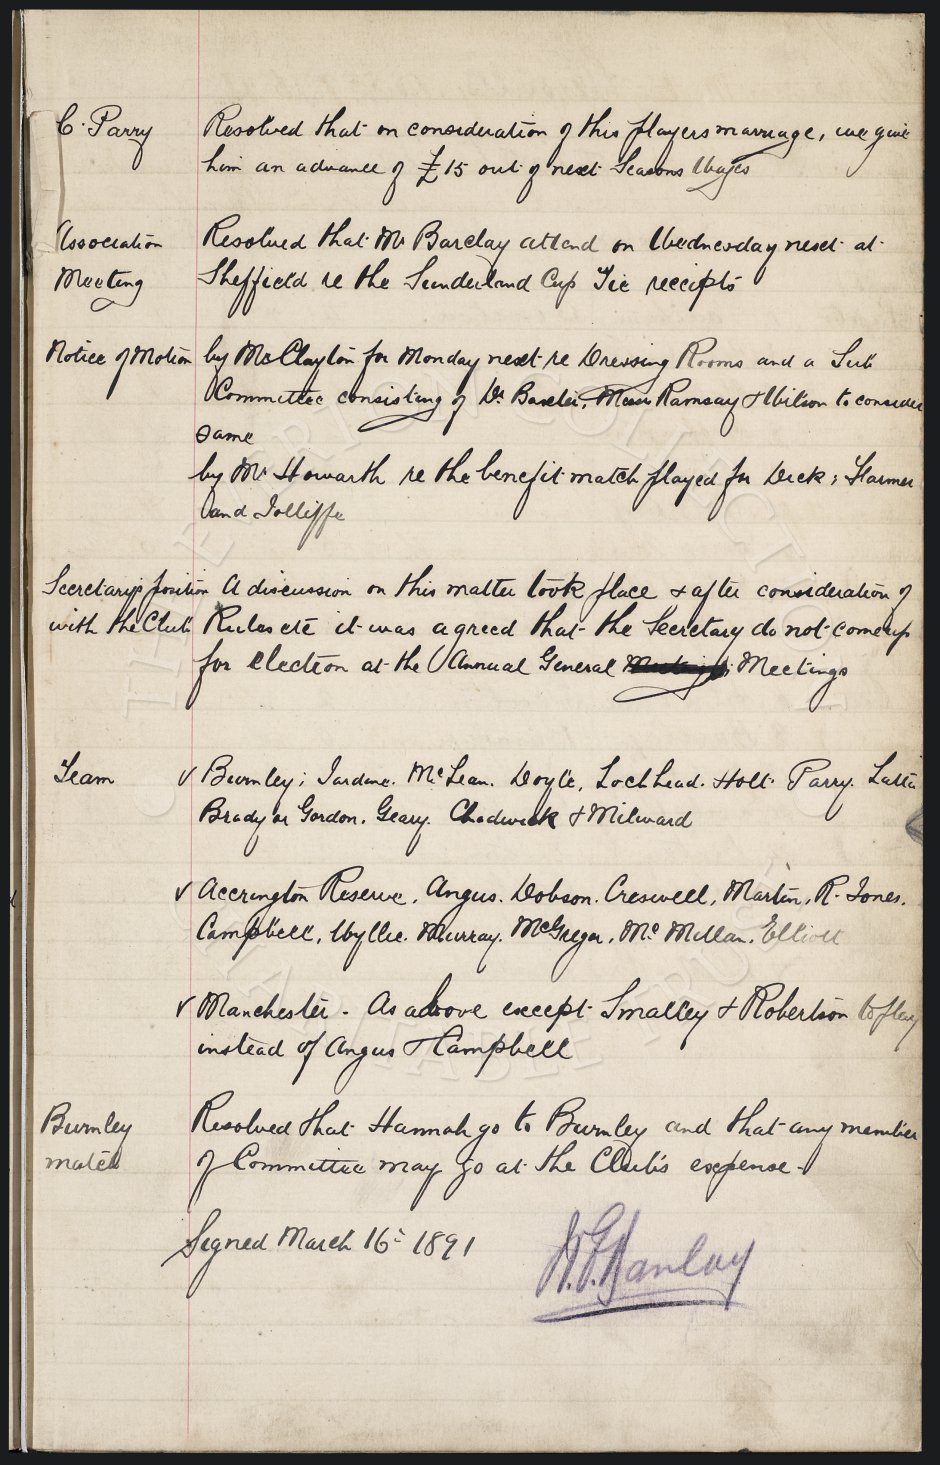 C. Parry Resolved that on consideration of this players marriage, we give
him an advance of £15 out of next Seasons Wages
Association Resolved that Mr Barclay attend on Wednesday next at
Meeting Sheffield re the Sunderland Cup Tie receipts
Notice of Motion by Mr Clayton for Monday next re Dressing Rooms and a Sub
Committee consisting of Dr. Baxter, Messrs Ramsay & Wilson to consider
same
by Mr Howarth re the benefit match played for Dick, Farmer
and Jolliffe
Secretary's position A discussion on this matter took place & after consideration of
with the Club Rules etc it was agreed that the Secretary do not come up
for election at the Annual General Meetings
Team ✓ Burnley; Jardine. McLean. Doyle, Lochhead. Holt. Parry. Latta
Brady or Gordon. Geary. Chadwick & Milward
✓ Accrington Reserve, Angus. Dobson. Creswell, Martin, R. Jones.
Campbell, Wyllie. Murray. McGregor, McMillan. Elliott
✓ Manchester - As above except Smalley & Robertson to play
instead of Angus & Campbell
Burnley Resolved that Hannah go to Burnley and that any member
match of Committee may go at the Club's expense -
Signed March 16th 1891